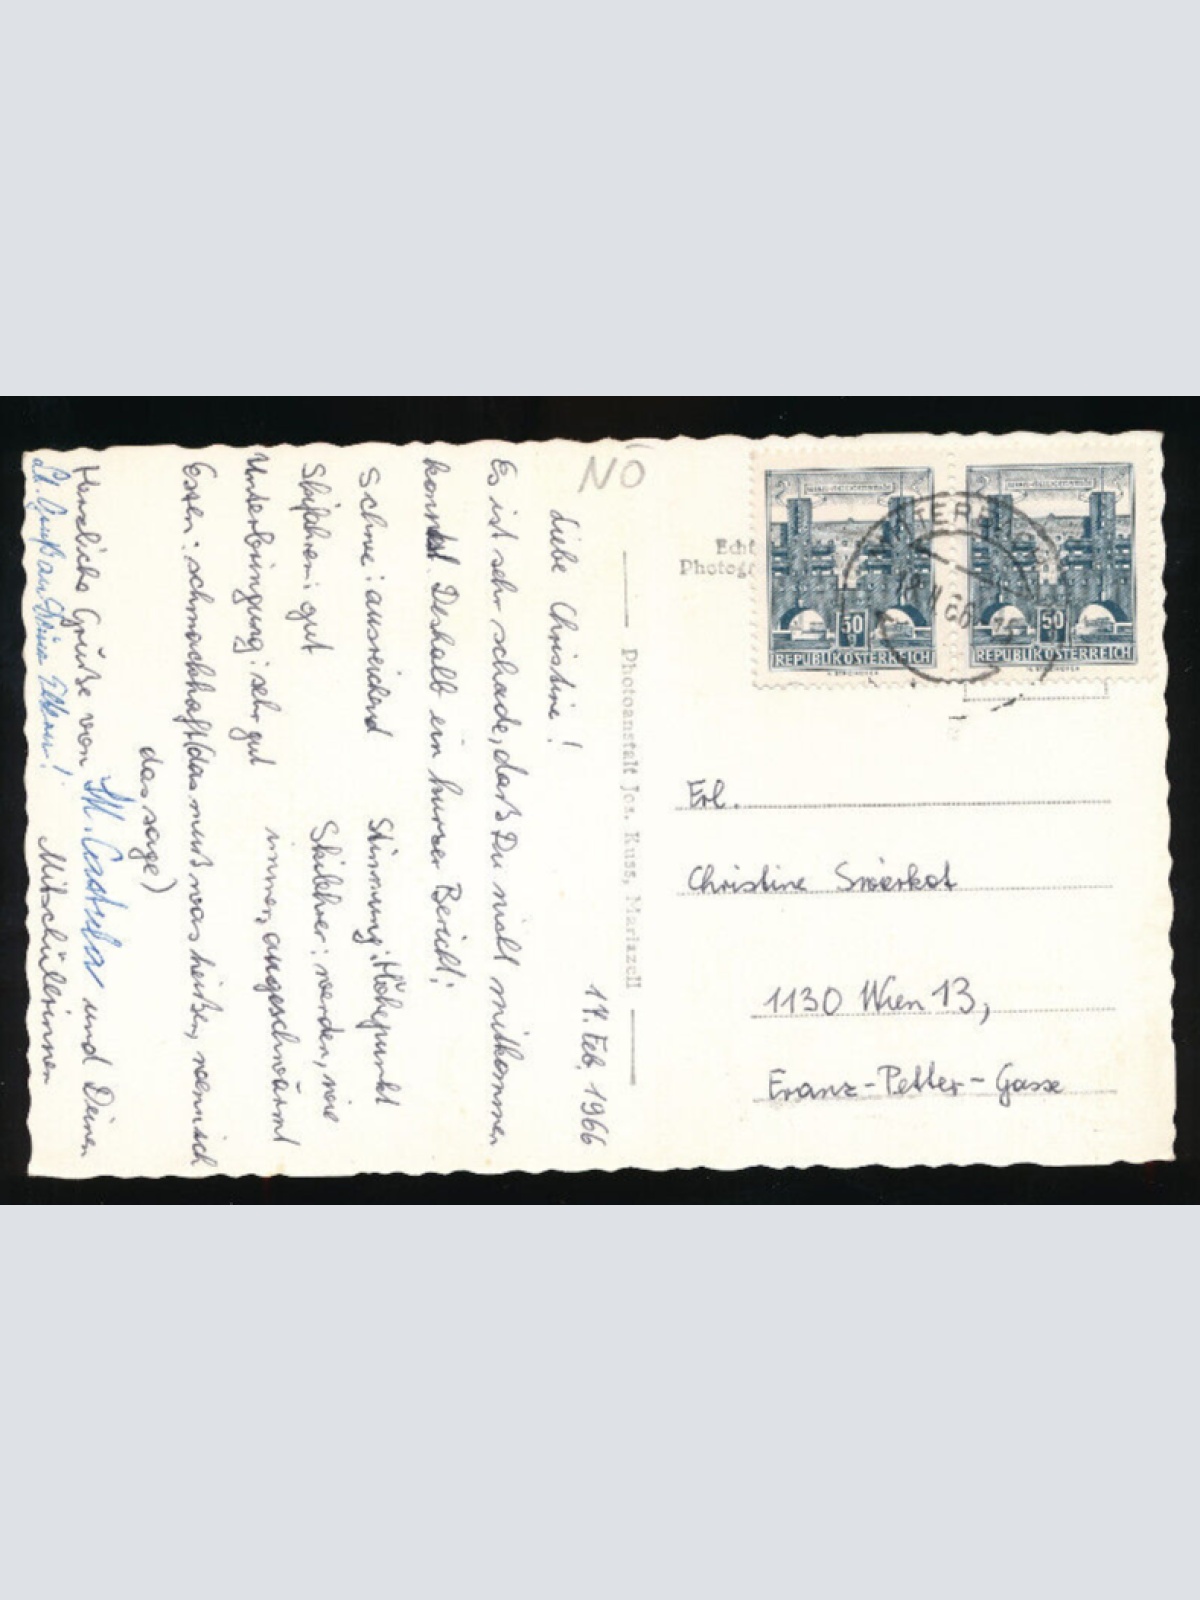 NÖ
17. Feb. 1966
Liebe Christine!
Es ist sehr schade, daß Du nicht mitkommen
konntest. Deshalb ein kurzer Bericht:
Schnee: ausreichend Stimmung: Höhepunkt
Skifahren: gut Skilehrer: werden, wie
Unterbringung: sehr gut immer, angeschwärmt
Essen: schmackhaft (das muß was heißen, wenn ich
das sage)
Herzliche Grüße von und Deinen
Mitschülerinnen
Photoanstalt Jos. Kuss, Mariazell
Echt
Photogr
REPUBLIK ÖSTERREICH
50 g
REPUBLIK ÖSTERREICH
50 g
18. II. 66
Frl.
Christine Swierkot
1130 Wien 13,
Franz-Petter-Gasse